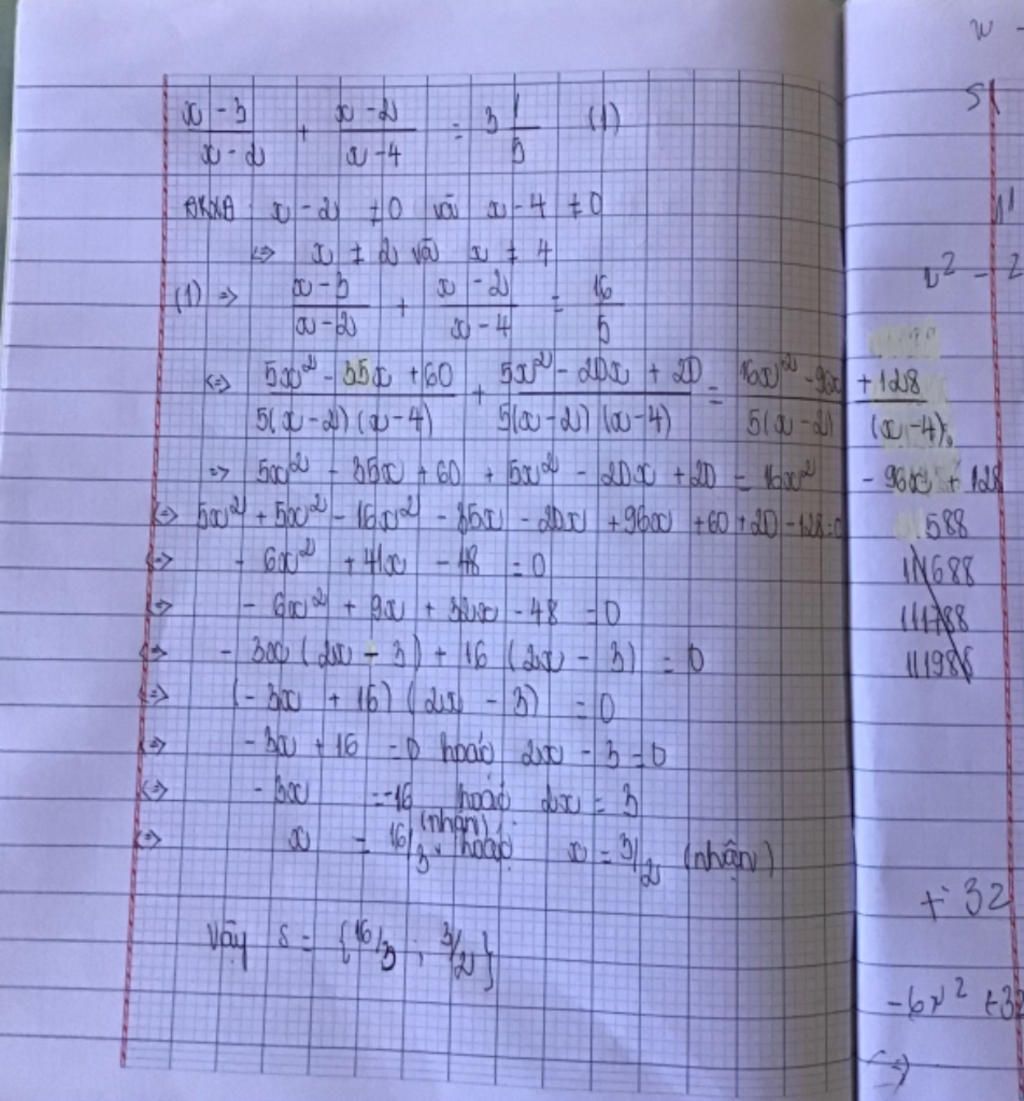 x - 3 / x - 2 + x - 2 / x - 4 = 3 1/5 (1)
ĐKXĐ x - 2 ≠ 0 và x - 4 ≠ 0
<=> x ≠ 2 và x ≠ 4
(1) => x - 3 / x - 2 + x - 2 / x - 4 = 16 / 5
<=> 5x² - 35x + 60 / 5(x - 2)(x - 4) + 5x² - 20x + 20 / 5(x - 2)(x - 4) = 16x² - 96x + 128 / 5(x - 2)(x - 4)
=> 5x² - 35x + 60 + 5x² - 20x + 20 = 16x² - 96x + 128
<=> 5x² + 5x² - 16x² - 35x - 20x + 96x + 60 + 20 - 128 = 0
<=> - 6x² + 41x - 48 = 0
<=> - 6x² + 9x + 32x - 48 = 0
<=> - 3x (2x - 3) + 16 (2x - 3) = 0
<=> (- 3x + 16) (2x - 3) = 0
<=> - 3x + 16 = 0 hoặc 2x - 3 = 0
<=> - 3x = -16 hoặc 2x = 3
<=> x = 16/3 (nhận) hoặc x = 3/2 (nhận)
Vậy S = {16/3 ; 3/2}
x² - 2
588
11688
111788
+ 32
-6x² +32
=>